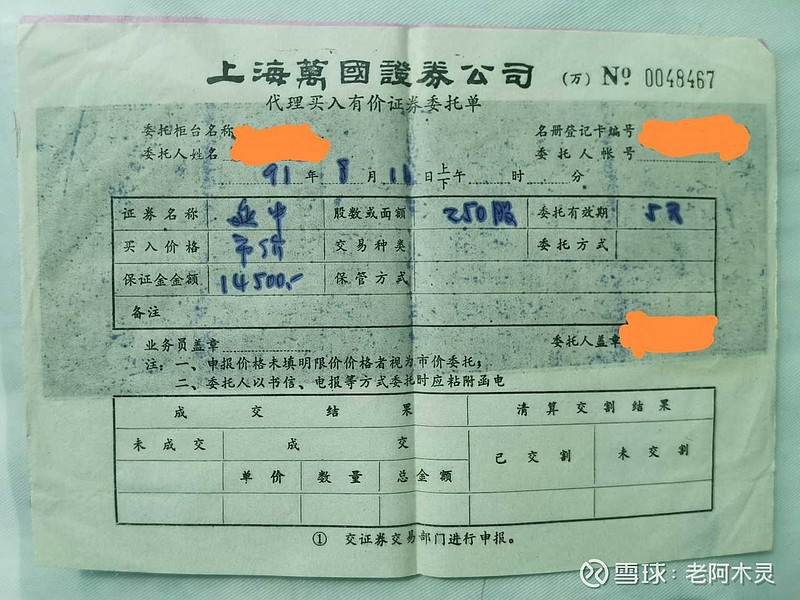 上海萬國證券公司 (万) Nº 0048467
代理买入有价证券委托单
委托柜台名称 名册登记卡编号
委托人姓名 委托人帐号
91年8月11日上/下午 时 分
证券名称 延中 股数或面额 250股 委托有效期 5天
买入价格 市价 交易种类 委托方式
保证金金额 14500.- 保管方式
备注
业务员盖章 委托人盖章
注：一、申报价格未填明限价价格者视为市价委托；
二、委托人以书信、电报等方式委托时应粘附函电
成交结果 清算交割结果
未成交 成交 已交割 未交割
单价 数量 总金额
① 交证券交易部门进行申报。
雪球：老阿木灵